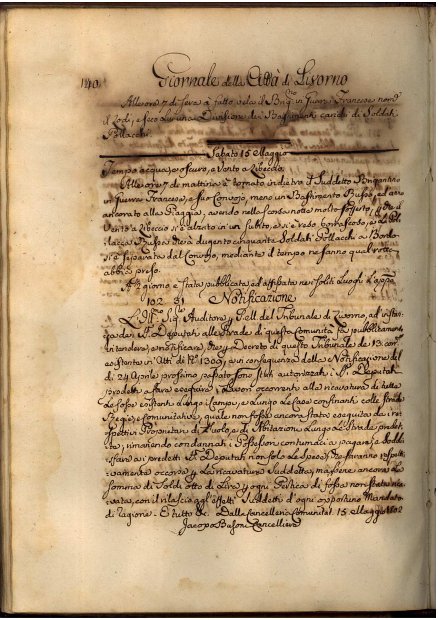 140
Giornale della Città di Livorno
Alle ore 7 di sera à fatto vela il Brig.no in Guerra Francese nom.
il Lodi, e seco lui una Divisione dei Bastimenti carichi di Soldati
Pollacchi.
Sabato 15 Maggio
Tempo acqua, e oscuro, e Vento a Libeccio
Alle ore 7 di mattina è tornato indietro il Suddetto Brigantino
in Guerra Francese, e suo Convojo, meno un Bastimento
ancorato alla Spiaggia, avendo nella scorsa notte molto sofferto,
Vento a Libeccio si è alzato in un subito, e si è reso burrascoso,
dugento cinquanta Soldati Pollacchi a Bordo
si è separata dal Convojo, mediante il tempo ne sanno qual rotta
abbia preso.
A di giorno è Stata pubblicata, ed affissata nei soliti Luoghi l'appa
102 31 Notificazione
L'Ill.mo Sig.re Auditore, del Tribunale di Livorno, ad istan
za dei SS. Deputati alle Strade di questa Comunità fa pubblicamente
intendere, e Notificare, che per Decreto di questo Tribunale de 13 cor.e
esistente in Atti di N.o 1309, e in conseguenza della Notificazione del
di 24 Aprile prossimo passato sono stati autorizzati i SS. Deputati
predetti a fare eseguire i Lavori occorrenti alla ricavatura di tutte
le fosse esistenti lungo i campi, e Lungo le case confinanti colle strade
Regie, e comunitative, quale non fosse ancora stata eseguita dai ris
pettivi Proprietari di Suolo, e di Abitazione Lungo le Strade predet
te, rimanendo condannati i Possessori contumaci a pagare, e soddi
sfare ai predetti SS. Deputati non solo le Spese, che saranno rispetti
vamente occorse p. La ricavatura Suddetta, ma bensì ancora la
somma di Soldi otto di Lira p. ogni Pertica di fossa non stata rica
vata, con il rilascio agl'effetti Suddetti d'ogni opportuno Mandato
di ragione. E tutto &c. Dalla Cancelleria Comunità.l 15 Maggio 1802
Jacopo Busoni Cancelliere